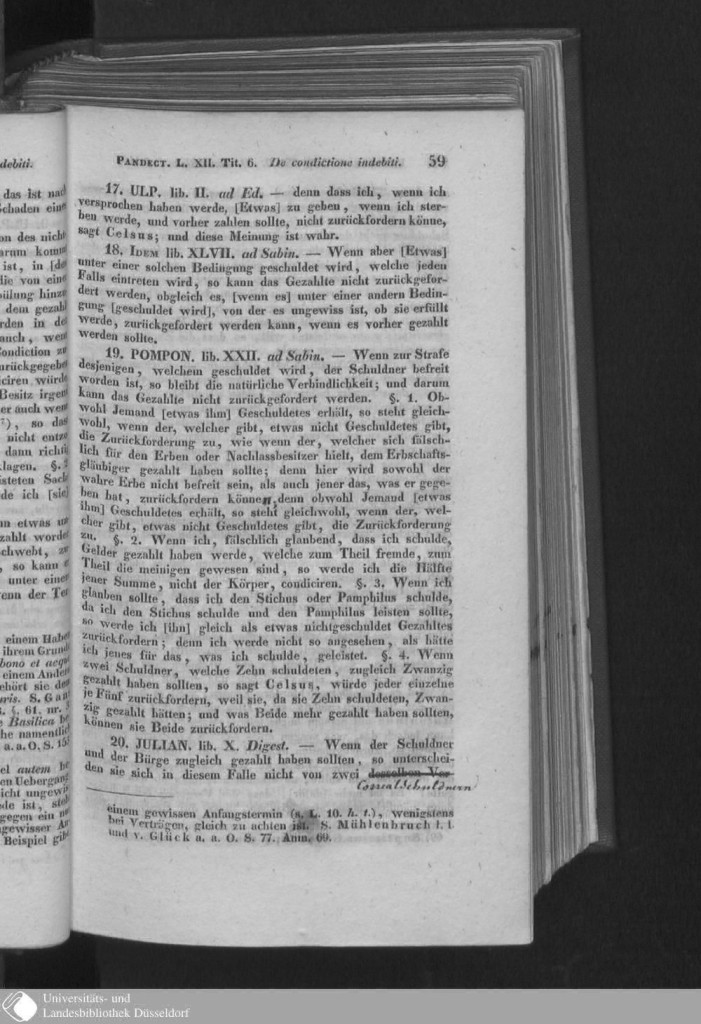 debiti.
das ist nach
Schaden eine
on des nicht
ist, in [de
die von eine
dem gezahl
rden in de
auch, wen
Condiction zu
zurückgegebe
ciren würde
Besitz irgen
er auch wem
), so das
nicht entze
dann richti
klagen. §.
isteten Sach
de ich [sie]
zahlt worde
chwebt, zu
, so kann e
unter einer
enn der Ter
einem Habe
ihrem Grund
bono et aequ
einem Andern
ehört sie den
§. 61. nr.
e Basilica be
he namentlic
a. a. O. S. 15
el autem be
en Uebergang
icht ungewis
de ist, steh
gegen ein ne
ngewisser An
Beispiel gibt
PANDECT. L. XII. Tit. 6. De condictione indebiti. 59
17. ULP. lib. II. ad Ed. — denn dass ich, wenn ich
versprochen haben werde, [Etwas] zu geben, wenn ich ster-
ben werde, und vorher zahlen sollte, nicht zurückfordern könne,
sagt Celsus; und diese Meinung ist wahr.
18. IDEM lib. XLVII. ad Sabin. — Wenn aber [Etwas]
unter einer solchen Bedingung geschuldet wird, welche jeden
Falls eintreten wird, so kann das Gezahlte nicht zurückgefor-
dert werden, obgleich es, [wenn es] unter einer andern Bedin-
gung [geschuldet wird], von der es ungewiss ist, ob sie erfüllt
werde, zurückgefordert werden kann, wenn es vorher gezahlt
werden sollte.
19. POMPON. lib. XXII. ad Sabin. — Wenn zur Strafe
desjenigen, welchem geschuldet wird, der Schuldner befreit
worden ist, so bleibt die natürliche Verbindlichkeit; und darum
kann das Gezahlte nicht zurückgefordert werden. §. 1. Ob-
wohl Jemand [etwas ihm] Geschuldetes erhält, so steht gleich-
wohl, wenn der, welcher gibt, etwas nicht Geschuldetes gibt,
die Zurückforderung zu, wie wenn der, welcher sich fälsch-
lich für den Erben oder Nachlassbesitzer hielt, dem Erbschafts-
gläubiger gezahlt haben sollte; denn hier wird sowohl der
wahre Erbe nicht befreit sein, als auch jener das, was er gege-
ben hat, zurückfordern können, denn obwohl Jemand [etwas
ihm] Geschuldetes erhält, so steht gleichwohl, wenn der, wel-
cher gibt, etwas nicht Geschuldetes gibt, die Zurückforderung
zu. §. 2. Wenn ich, fälschlich glaubend, dass ich schulde,
Gelder gezahlt haben werde, welche zum Theil fremde, zum
Theil die meinigen gewesen sind, so werde ich die Hälfte
jener Summe, nicht der Körper, condiciren. §. 3. Wenn ich
glauben sollte, dass ich den Stichus oder Pamphilus schulde,
da ich den Stichus schulde und den Pamphilus leisten sollte,
so werde ich [ihn] gleich als etwas nichtgeschuldet Gezahltes
zurückfordern; denn ich werde nicht so angesehen, als hätte
ich jenes für das, was ich schulde, geleistet. §. 4. Wenn
zwei Schuldner, welche Zehn schuldeten, zugleich Zwanzig
gezahlt haben sollten, so sagt Celsus, würde jeder einzelne
je Fünf zurückfordern, weil sie, da sie Zehn schuldeten, Zwan-
zig gezahlt hätten; und was Beide mehr gezahlt haben sollten,
können sie Beide zurückfordern.
20. JULIAN. lib. X. Digest. — Wenn der Schuldner
und der Bürge zugleich gezahlt haben sollten, so unterschei-
den sie sich in diesem Falle nicht von zwei desselben Ver-
Correalschuldnern
einem gewissen Anfangstermin (s. L. 10. h. t.), wenigstens
bei Verträgen, gleich zu achten ist. S. Mühlenbruch l. l.
und v. Glück a. a. O. S. 77. Anm. 69.
Universitäts- und
Landesbibliothek Düsseldorf